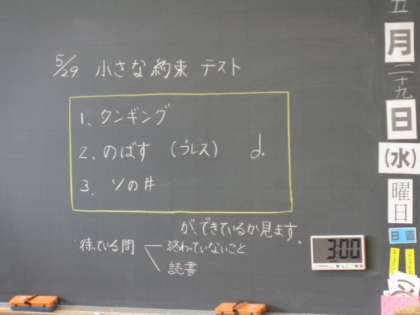 5/29 小さな約束 テスト
1、タンギング
2、のばす (ブレス)
3、ソの#
が、できているか見ます。
待っている間
終わっていないこと
読書
3:00
五
月
二十九
日
(水)
曜日
日直